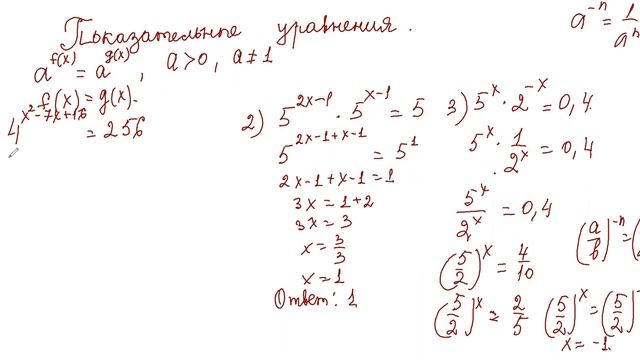 Показательные уравнения.
a^f(x) = a^g(x), a>0, a≠1
f(x) = g(x).
4^(x²-7x+16) = 256
2) 5^(2x-1) · 5^(x-1) = 5
5^(2x-1+x-1) = 5^1
2x-1+x-1=1
3x = 1+2
3x = 3
x = 3/3
x = 1
Ответ: 1
a^(-n) = 1/a^n
3) 5^x · 2^(-x) = 0,4
5^x · 1/2^x = 0,4
5^x/2^x = 0,4
(5/2)^x = 4/10
(a/b)^(-n) = (
(5/2)^x = 2/5 (5/2)^x = (5/2)^-
x = -1.